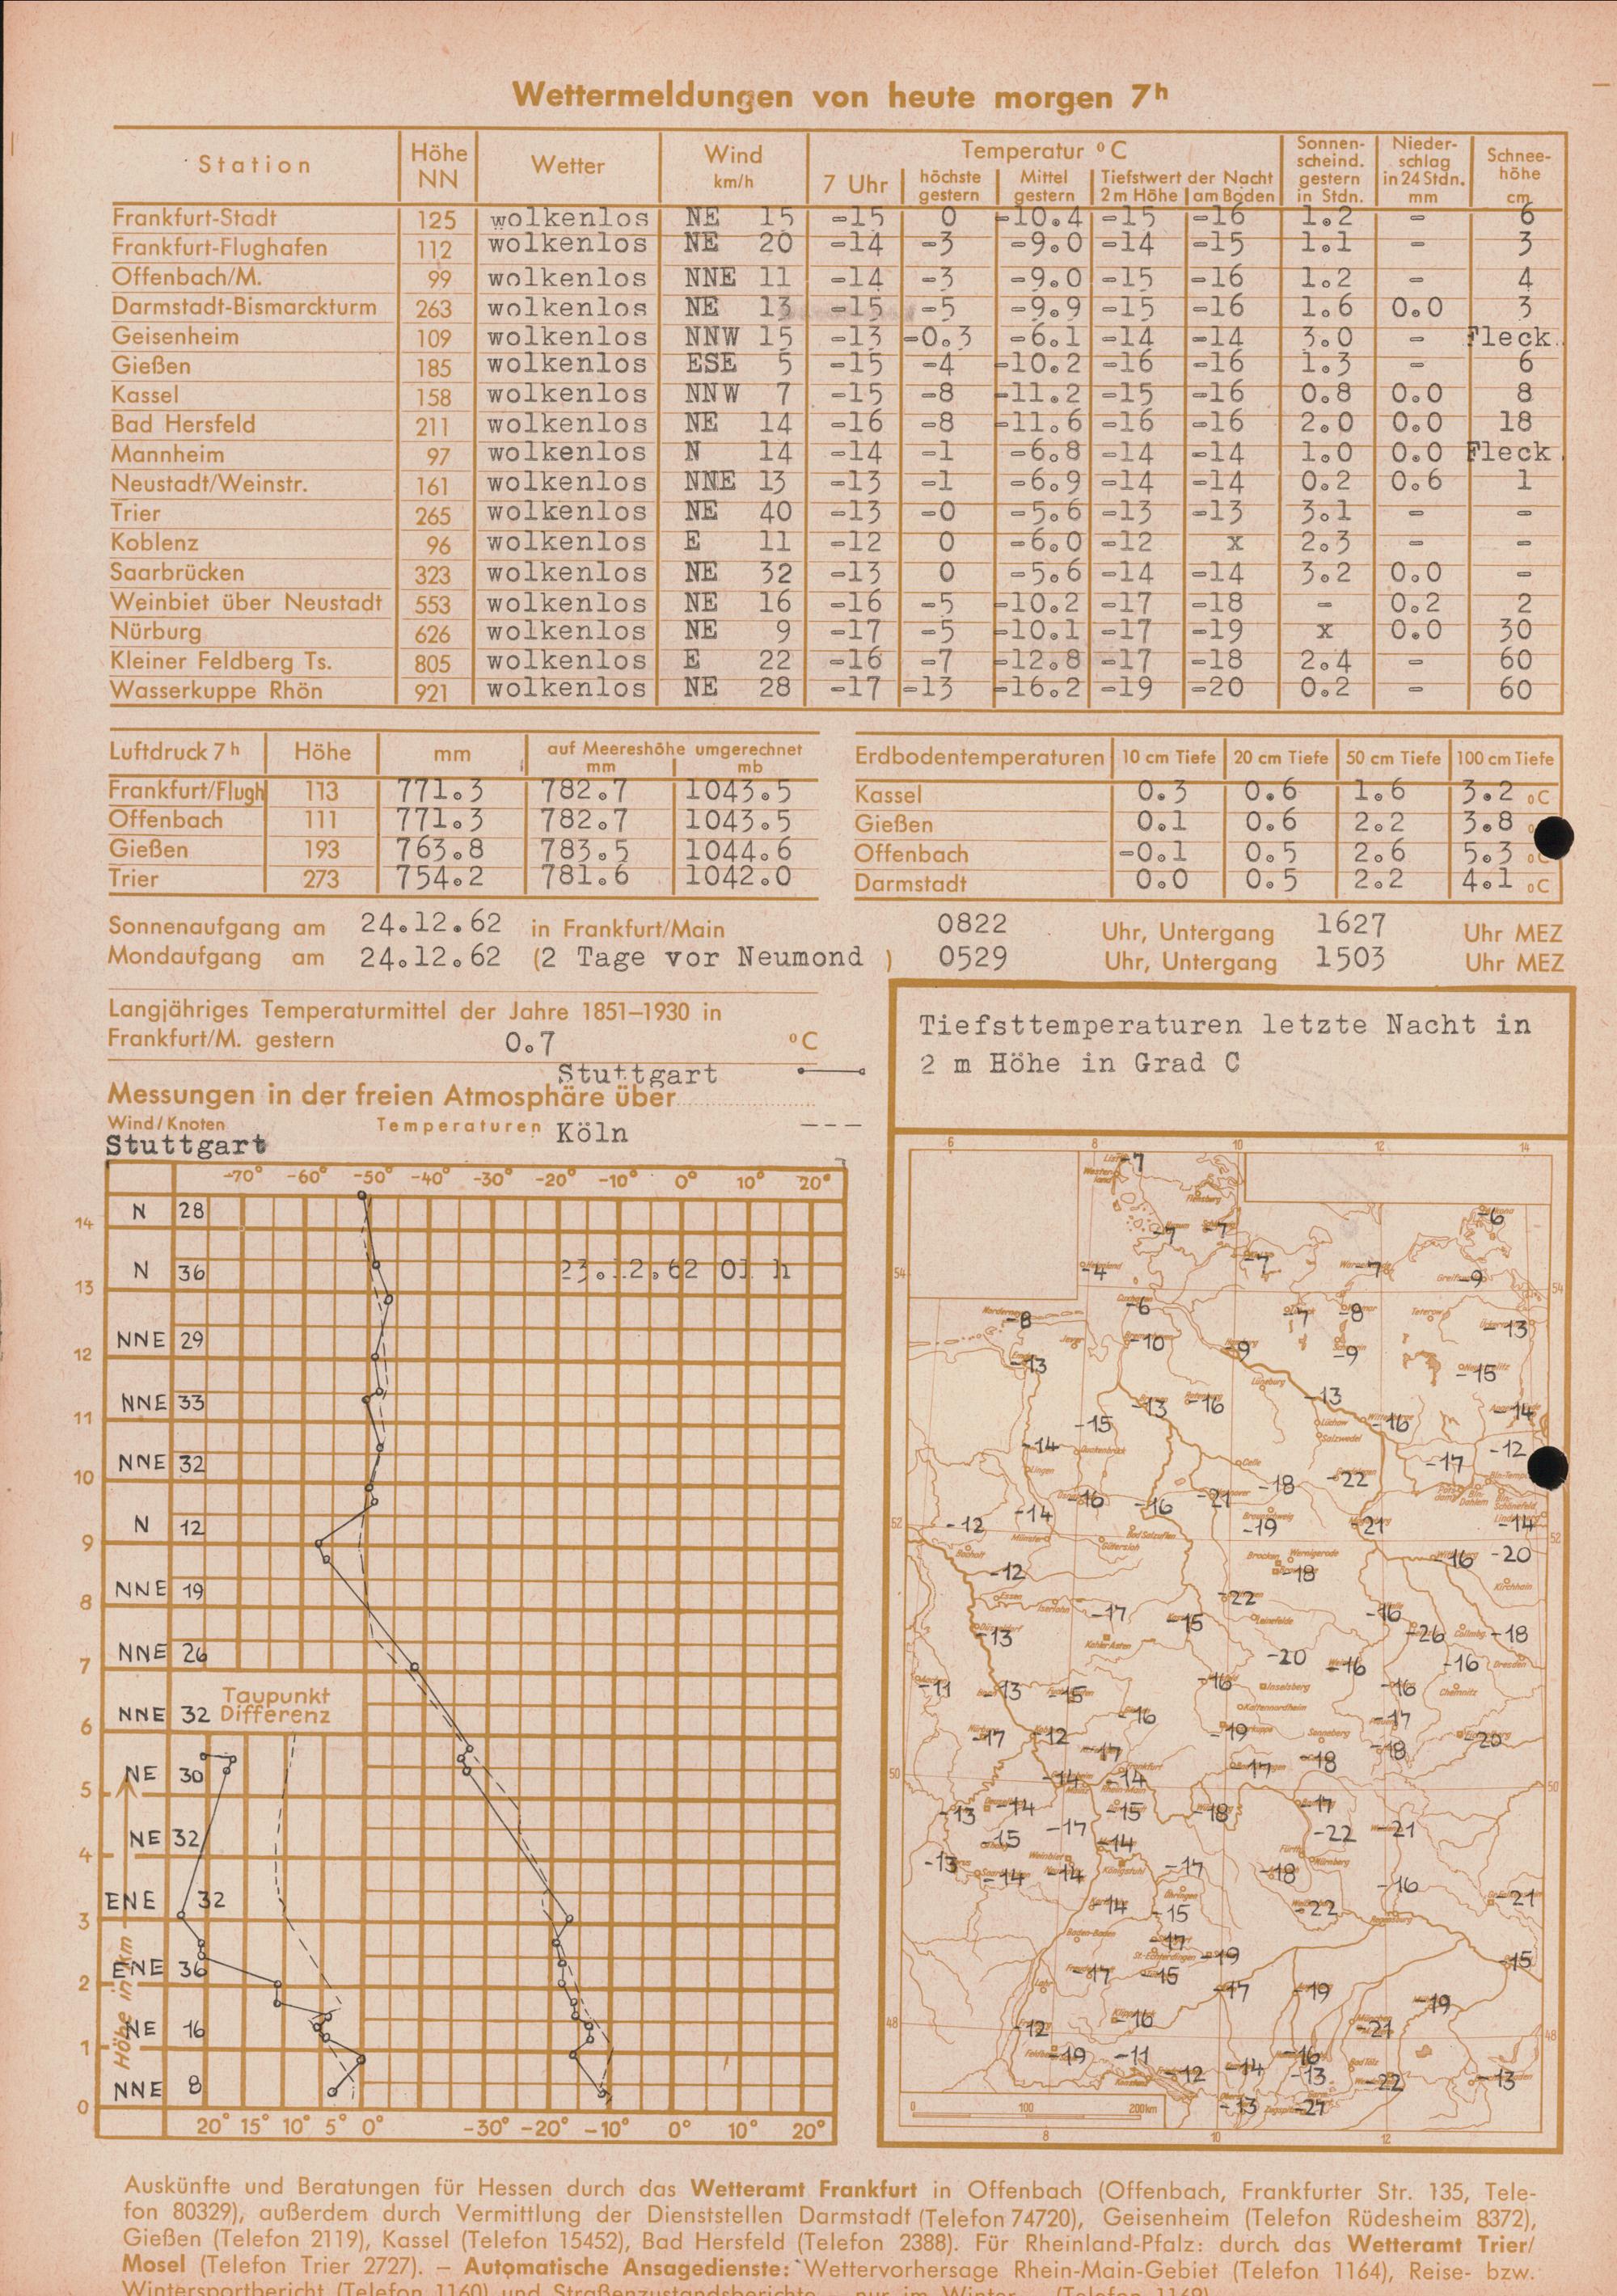 Wettermeldungen von heute morgen 7h
Station Höhe NN Wetter Wind km/h Temperatur °C Sonnenscheind. gestern in Stdn. Niederschlag in 24 Stdn. mm Schneehöhe cm
7 Uhr höchste gestern Mittel gestern Tiefstwert der Nacht 2 m Höhe am Boden
Frankfurt-Stadt 125 wolkenlos NE 15 -15 0 -10.4 -15 -16 1.2 - 6
Frankfurt-Flughafen 112 wolkenlos NE 20 -14 -3 -9.0 -14 -15 1.1 - 3
Offenbach/M. 99 wolkenlos NNE 11 -14 -3 -9.0 -15 -16 1.2 - 4
Darmstadt-Bismarckturm 263 wolkenlos NE 13 -15 -5 -9.9 -15 -16 1.6 0.0 3
Geisenheim 109 wolkenlos NNW 15 -13 -0.3 -6.1 -14 -14 3.0 - Fleck.
Gießen 185 wolkenlos ESE 5 -15 -4 -10.2 -16 -16 1.3 - 6
Kassel 158 wolkenlos NNW 7 -15 -8 -11.2 -15 -16 0.8 0.0 8
Bad Hersfeld 211 wolkenlos NE 14 -16 -8 -11.6 -16 -16 2.0 0.0 18
Mannheim 97 wolkenlos N 14 -14 -1 -6.8 -14 -14 1.0 0.0 Fleck.
Neustadt/Weinstr. 161 wolkenlos NNE 13 -13 -1 -6.9 -14 -14 0.2 0.6 1
Trier 265 wolkenlos NE 40 -13 -0 -5.6 -13 -13 3.1 - -
Koblenz 96 wolkenlos E 11 -12 0 -6.0 -12 x 2.3 - -
Saarbrücken 323 wolkenlos NE 32 -13 0 -5.6 -14 -14 3.2 0.0 -
Weinbiet über Neustadt 553 wolkenlos NE 16 -16 -5 -10.2 -17 -18 - 0.2 2
Nürburg 626 wolkenlos NE 9 -17 -5 -10.1 -17 -19 x 0.0 30
Kleiner Feldberg Ts. 805 wolkenlos E 22 -16 -7 -12.8 -17 -18 2.4 - 60
Wasserkuppe Rhön 921 wolkenlos NE 28 -17 -13 -16.2 -19 -20 0.2 - 60
Luftdruck 7h Höhe mm auf Meereshöhe umgerechnet mm mb
Frankfurt/Flugh 113 771.3 782.7 1043.5
Offenbach 111 771.3 782.7 1043.5
Gießen 193 763.8 783.5 1044.6
Trier 273 754.2 781.6 1042.0
Erdbodentemperaturen 10 cm Tiefe 20 cm Tiefe 50 cm Tiefe 100 cm Tiefe
Kassel 0.3 0.6 1.6 3.2 °C
Gießen 0.1 0.6 2.2 3.8 °
Offenbach -0.1 0.5 2.6 5.3 °C
Darmstadt 0.0 0.5 2.2 4.1 °C
Sonnenaufgang am 24.12.62 in Frankfurt/Main 0822 Uhr, Untergang 1627 Uhr MEZ
Mondaufgang am 24.12.62 (2 Tage vor Neumond ) 0529 Uhr, Untergang 1503 Uhr MEZ
Langjähriges Temperaturmittel der Jahre 1851–1930 in
Frankfurt/M. gestern 0.7 °C
Stuttgart
Messungen in der freien Atmosphäre über
Wind/Knoten Temperaturen Köln ---
Stuttgart
-70° -60° -50° -40° -30° -20° -10° 0° 10° 20°
N 28
14
N 36 23.12.62 01 h
13
NNE 29
12
NNE 33
11
NNE 32
10
N 12
9
NNE 19
8
NNE 26
7
NNE 32 Taupunkt Differenz
6
NE 30
5
NE 32
4
ENE 32
3
ENE 36
2
NE 16
1
NNE 8
0
Höhe in km
20° 15° 10° 5° 0° -30° -20° -10° 0° 10° 20°
Tiefsttemperaturen letzte Nacht in
2 m Höhe in Grad C
6 8 10 12 14
-7
-6
-7 -7
-4 -7 -7 -9
54 54
-8 -6 -7 -8 -13
-13 -10 -9 -9 -15
-13 -16 -13 -16 -14
-15 -14 -17 -12
-16 -16 -21 -18 -22
-12 -14 -19 -21 -14
52 52
-12 -18 -16 -20
-13 -17 -15 -22 -16 -26 -18
-20 -16 -16
-11 -13 -15 -16 -16
-17 -12 -16 -19 -17 -20
-17 -17 -18 -18
50 50
-14 -14
-13 -14 -15 -18 -17
-15 -17 -14 -22 -21
-13 -14 -14 -17 -18 -16
-14 -15 -22 -21
-17 -19 -15
-17 -15 -17 -19 -19
48 48
-12 -16 -21
-19 -11 -12 -14 -16 -13 -22 -13
-13 -27
0 100 200km
8 10 12
Auskünfte und Beratungen für Hessen durch das Wetteramt Frankfurt in Offenbach (Offenbach, Frankfurter Str. 135, Tele-
fon 80329), außerdem durch Vermittlung der Dienststellen Darmstadt (Telefon 74720), Geisenheim (Telefon Rüdesheim 8372),
Gießen (Telefon 2119), Kassel (Telefon 15452), Bad Hersfeld (Telefon 2388). Für Rheinland-Pfalz: durch das Wetteramt Trier/
Mosel (Telefon Trier 2727). — Automatische Ansagedienste: Wettervorhersage Rhein-Main-Gebiet (Telefon 1164), Reise- bzw.
Wintersportbericht (Telefon 1160) und Straßenzustandsberichte — nur im Winter — (Telefon 1169).